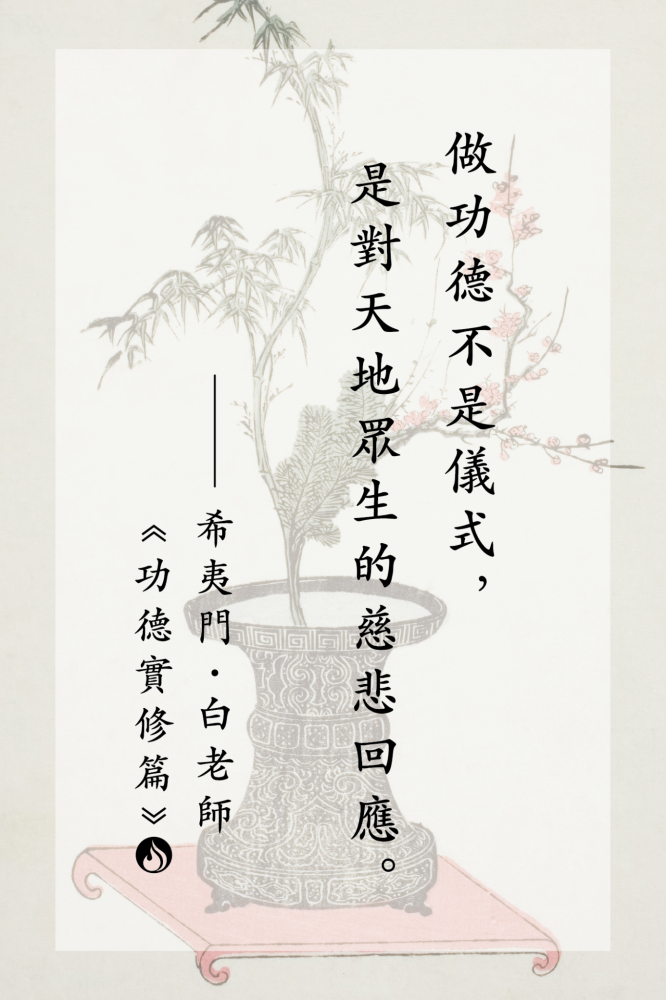 做功德不是儀式，
是對天地眾生的慈悲回應。
——希夷門・白老師
《功德實修篇》